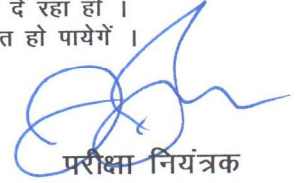 दे रहा हो ।
त हो पायेगें ।
परीक्षा नियंत्रक